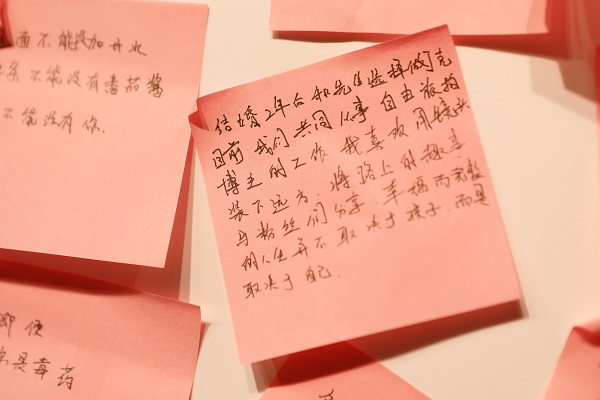 面不能没加开水
条不能没有番茄酱
不能没有你.
结婚2年后和先生选择做丁克
目前我们共同从事自由旅拍
博主的工作我喜欢用镜头
装下远方.将路上的趣事
与粉丝们分享.幸福而完整
的人生并不取决于孩子.而是
取决于自己.
即便
你是毒药